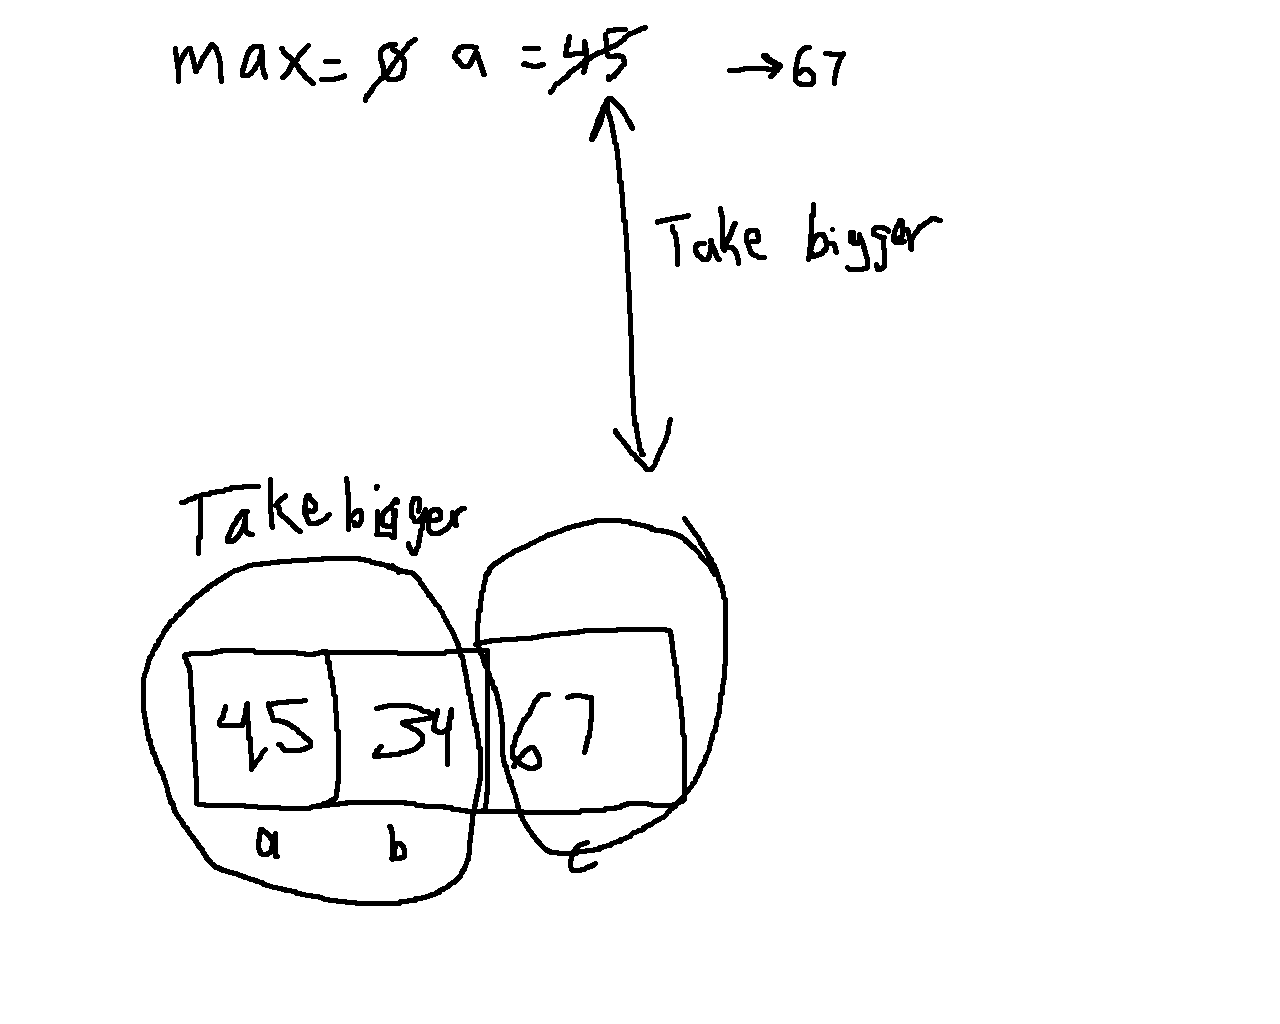 max=0 a =45 →67
Take bigger
Take bigger
45 34 67
a b c